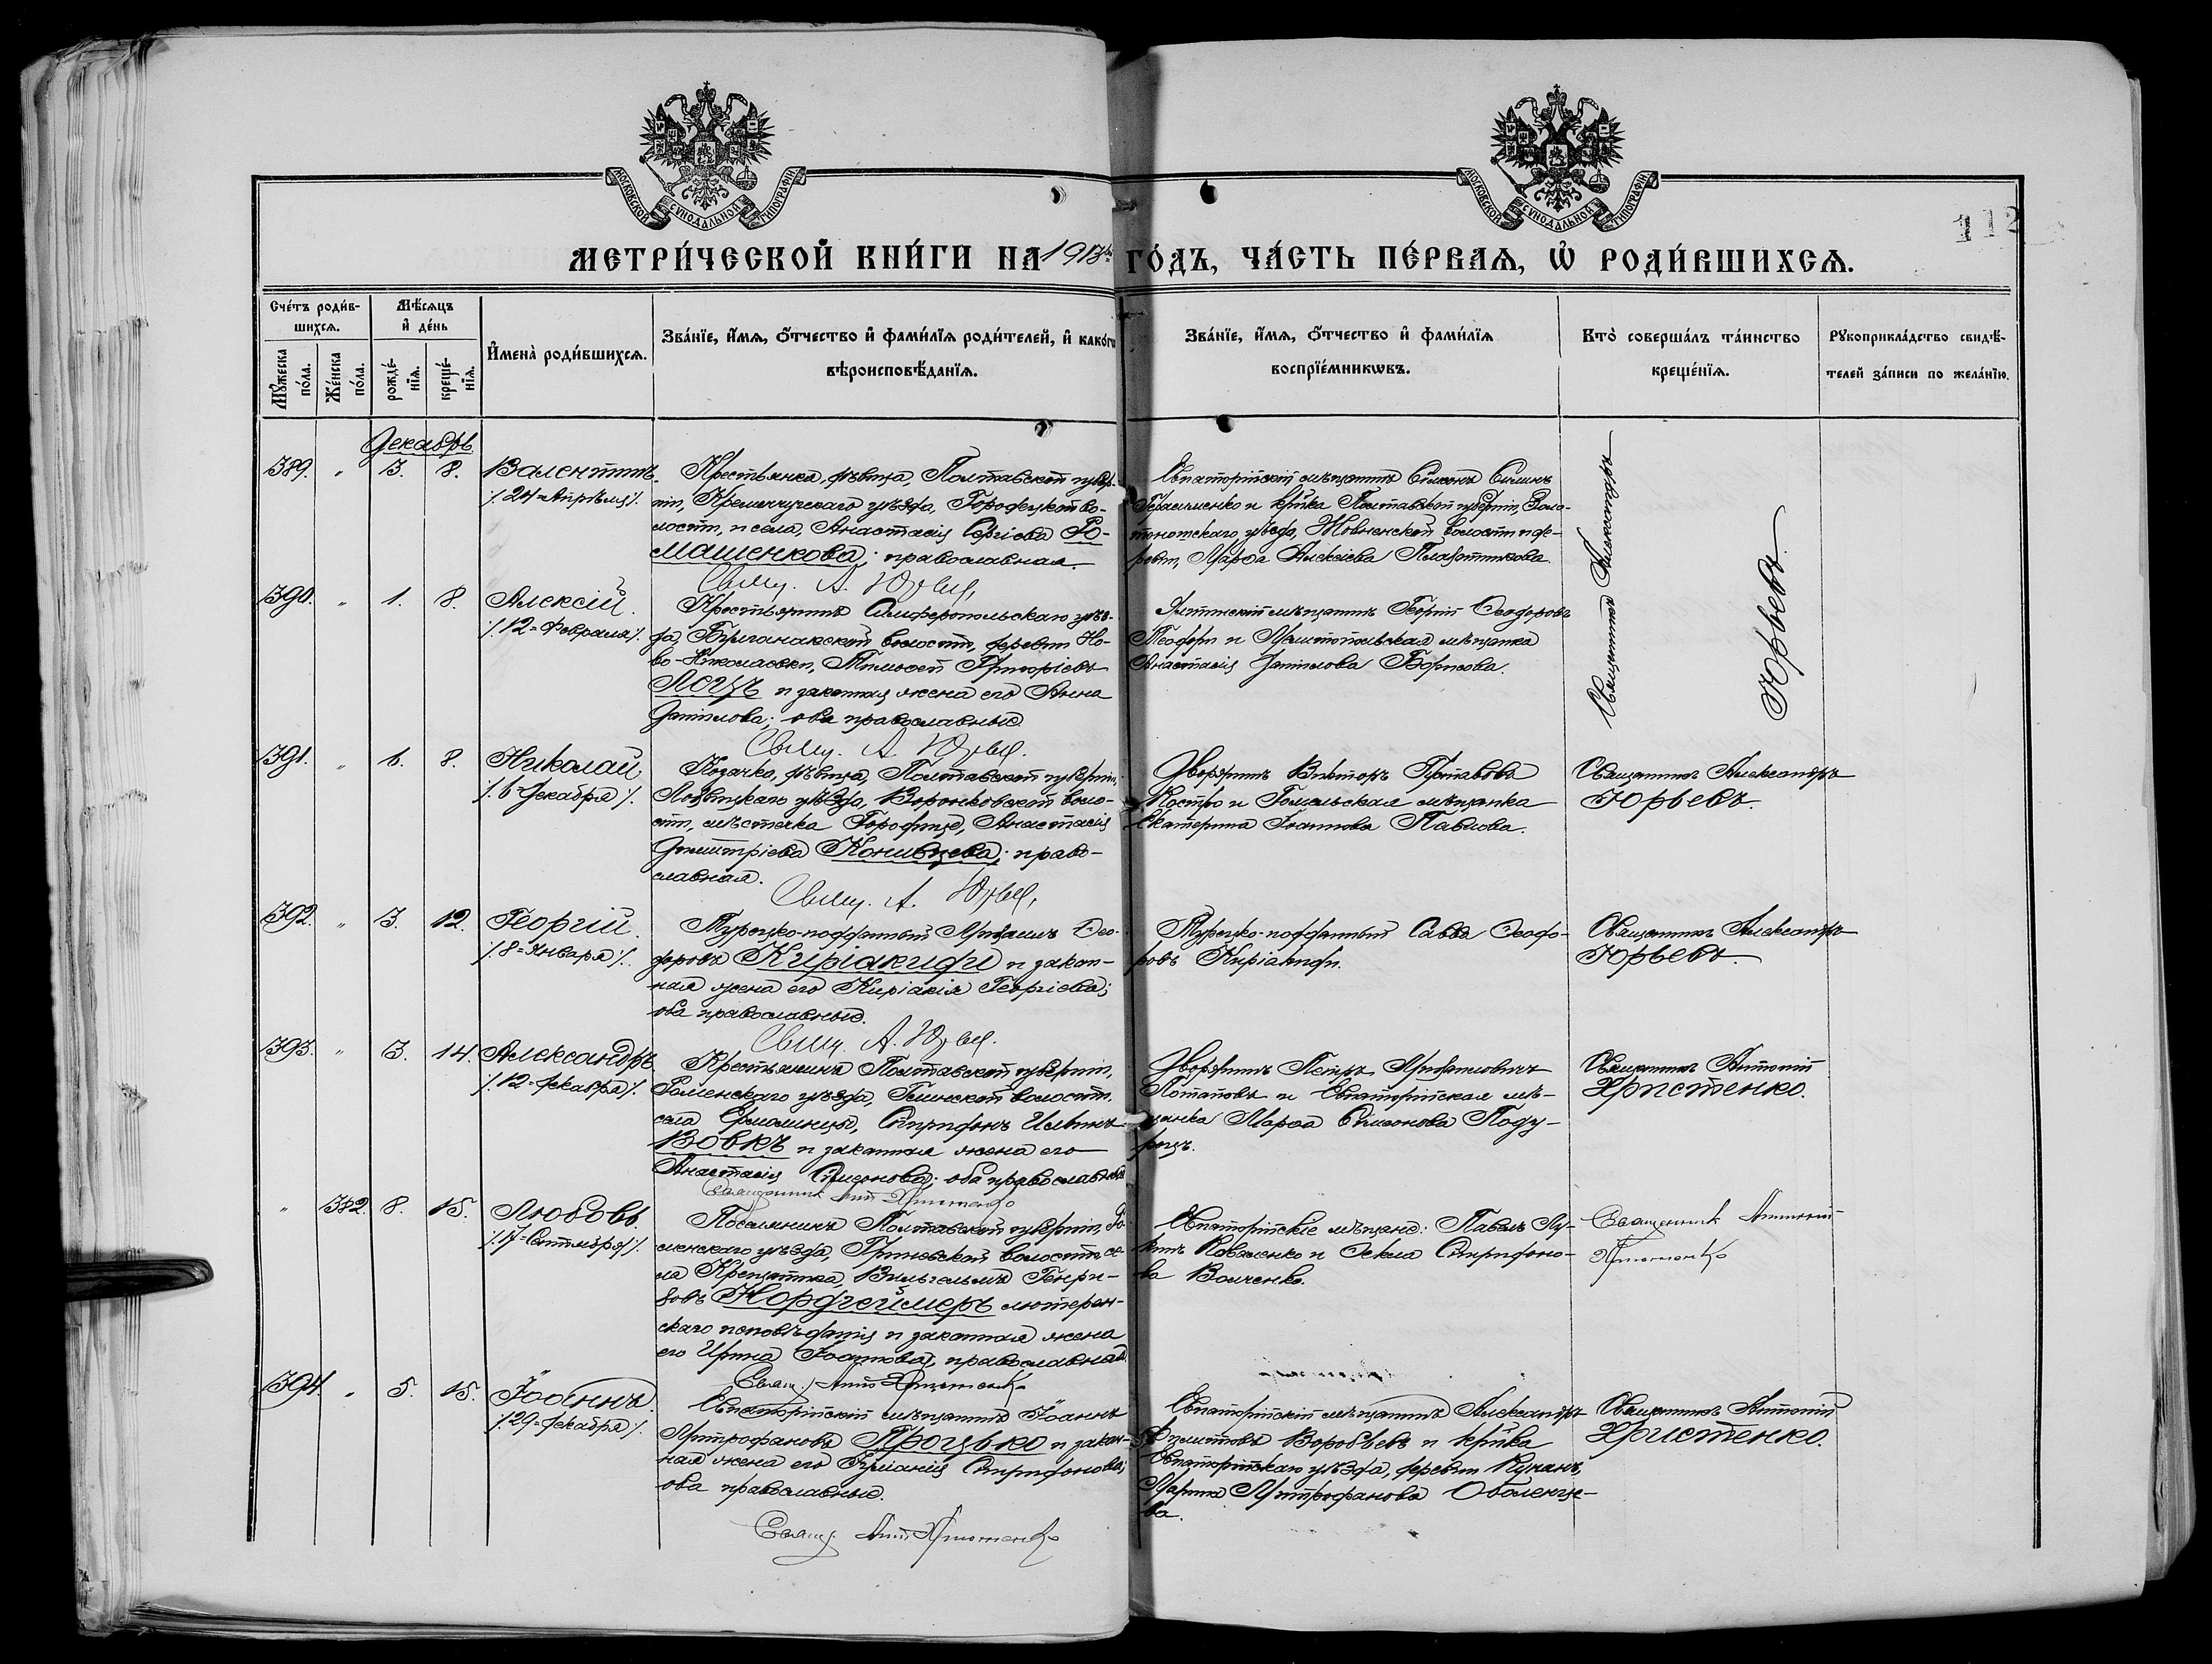 МОСКОВСКОЙ СѴНОДАЛЬНОЙ ТИПОГРАФІИ
МОСКОВСКОЙ СѴНОДАЛЬНОЙ ТИПОГРАФІИ
112
МЕТРИ́ЧЕСКОЙ КНИ́ГИ НА 1913й ГО́ДЪ, ЧА́СТЬ ПЕ́РВАѦ, Ѡ҆ РОДИ́ВШИХСѦ.
Сче́тъ роди́в-
шихсѧ.
Мꙋ́жеска
по́ла.
Же́нска
по́ла.
Мѣ́сѧцъ
и҆ де́нь
рожде́-
нїѧ.
креще́-
нїѧ.
И҆мена̀ роди́вшихсѧ.
Зва́нїе, и҆́мѧ, ѻ҆́тчество и҆ фами́лїѧ роди́телей, и҆ како́гѡ
вѣроисповѣ́данїѧ.
Зва́нїе, и҆́мѧ, ѻ҆́тчество и҆ фами́лїѧ
воспрїе́мникѡвъ.
Кто̀ соверша́лъ та́инство
креще́нїѧ.
Рꙋкоприкла́дство свидѣ́-
телей за́писи по жела́нїю.
Декабрь
389. " 3. 8. Валентинъ
/24=Апрѣля/.
Крестьянка, дѣвица, Полтавской губер-
ніи, Кременчугскаго уѣзда,
лости, и села, Анастасія Сергіева Ро-
машенкова; православная.
Свящ. А. Юрьев.
Евпаторійскій мѣщанинъ Симеонъ
Герасименко и кр-ка Полтавской губерніи, Золо-
тоношскаго уѣзда, Жовнинской волости и де-
ревни, Марфа Алексіева Плаботникова.
Священникъ Александръ
Юрьевъ.
390. " 1. 8. Алексій.
/12=Февраля/.
Крестьянинъ Симферопольскаго уѣз-
да, Булганакской волости, деревни Но-
во-Николаевки, Тимофей Григоріевъ
Логуъ и законная жена его Анна
Даніилова; оба православные
Свящ. А. Юрьев.
Ялтинскій мѣщанинъ Георгій Ѳеодоровъ
и Мелитопольская мѣщанка
Анастасія Даніилова Борисова.
391. " 6. 8. Николай
/6=Декабря/.
Козачка, дѣвица, Полтавской губерніи,
Лохвицкаго уѣзда, Воронковской воло-
сти, мѣстечка Городище, Анастасія
Димитріева Конивцева; право-
славная.
Свящ. А. Юрьев.
Дворянинъ Викторъ Густавовъ
Костро и Гомельская мѣщанка
Екатерина Іоаннова Павлова.
Священникъ Александръ
Юрьевъ.
392. " 3. 12. Георгій.
/8=Января/.
Турецко-подданный Михаилъ Ѳео-
доровъ Киріакиди и закон-
ная жена его Киріакія Георгіева;
оба православные.
Свящ. А. Юрьев.
Турецко-подданный Савва Ѳеодо-
ровъ Киріакиди.
Священникъ Александръ
Юрьевъ.
393. " 3. 14. Александръ
/12=Декабря/.
Крестьянинъ Полтавской губерніи,
Роменскаго уѣзда, Глинской волости,
села Ярмолинцы, Спиридонъ Ильинъ
Вовкъ и законная жена его
Анастасія Симеонова; оба православные
Священникъ Ант. Христенко
Дворянинъ Петръ Михаиловичъ
Потаповъ и Евпаторійская мѣ-
щанка Марѳа Симеонова Поду-
рецъ.
Священникъ Антоній
Христенко.
" 382. 8. 15. Любовь.
/17=Сентября/.
Поселянинъ Полтавской губерніи, Ро-
менскаго уѣзда, Гриневской волости, се-
ла Хрещатика, Вильгельмъ Генри-
ховъ Нордгеймеръ лютеран-
скаго исповѣданія и законная жена
его Ирина Іоаннова, православная.
Свящ. Ант. Христенко
Евпаторійскіе мѣщане: Павелъ Лу-
кинъ Коваленко и Ѳекла Спиридоно-
ва Волченко.
Священникъ Антоній
Христенко
394. " 5. 15. Іоаннъ.
/29=Декабря/.
Евпаторійскій мѣщанинъ Іоаннъ
Митрофановъ Яроцько и закон-
ная жена его Іуліанія Спиридонова;
оба православные.
Свящ. Ант. Христенко
Евпаторійскій мѣщанинъ Александръ
Филипповъ Воробьевъ и кр-ка
Евпаторійскаго уѣзда, деревни Кунанъ,
Марина Митрофанова Оболенце-
ва.
Священникъ Антоній
Христенко.